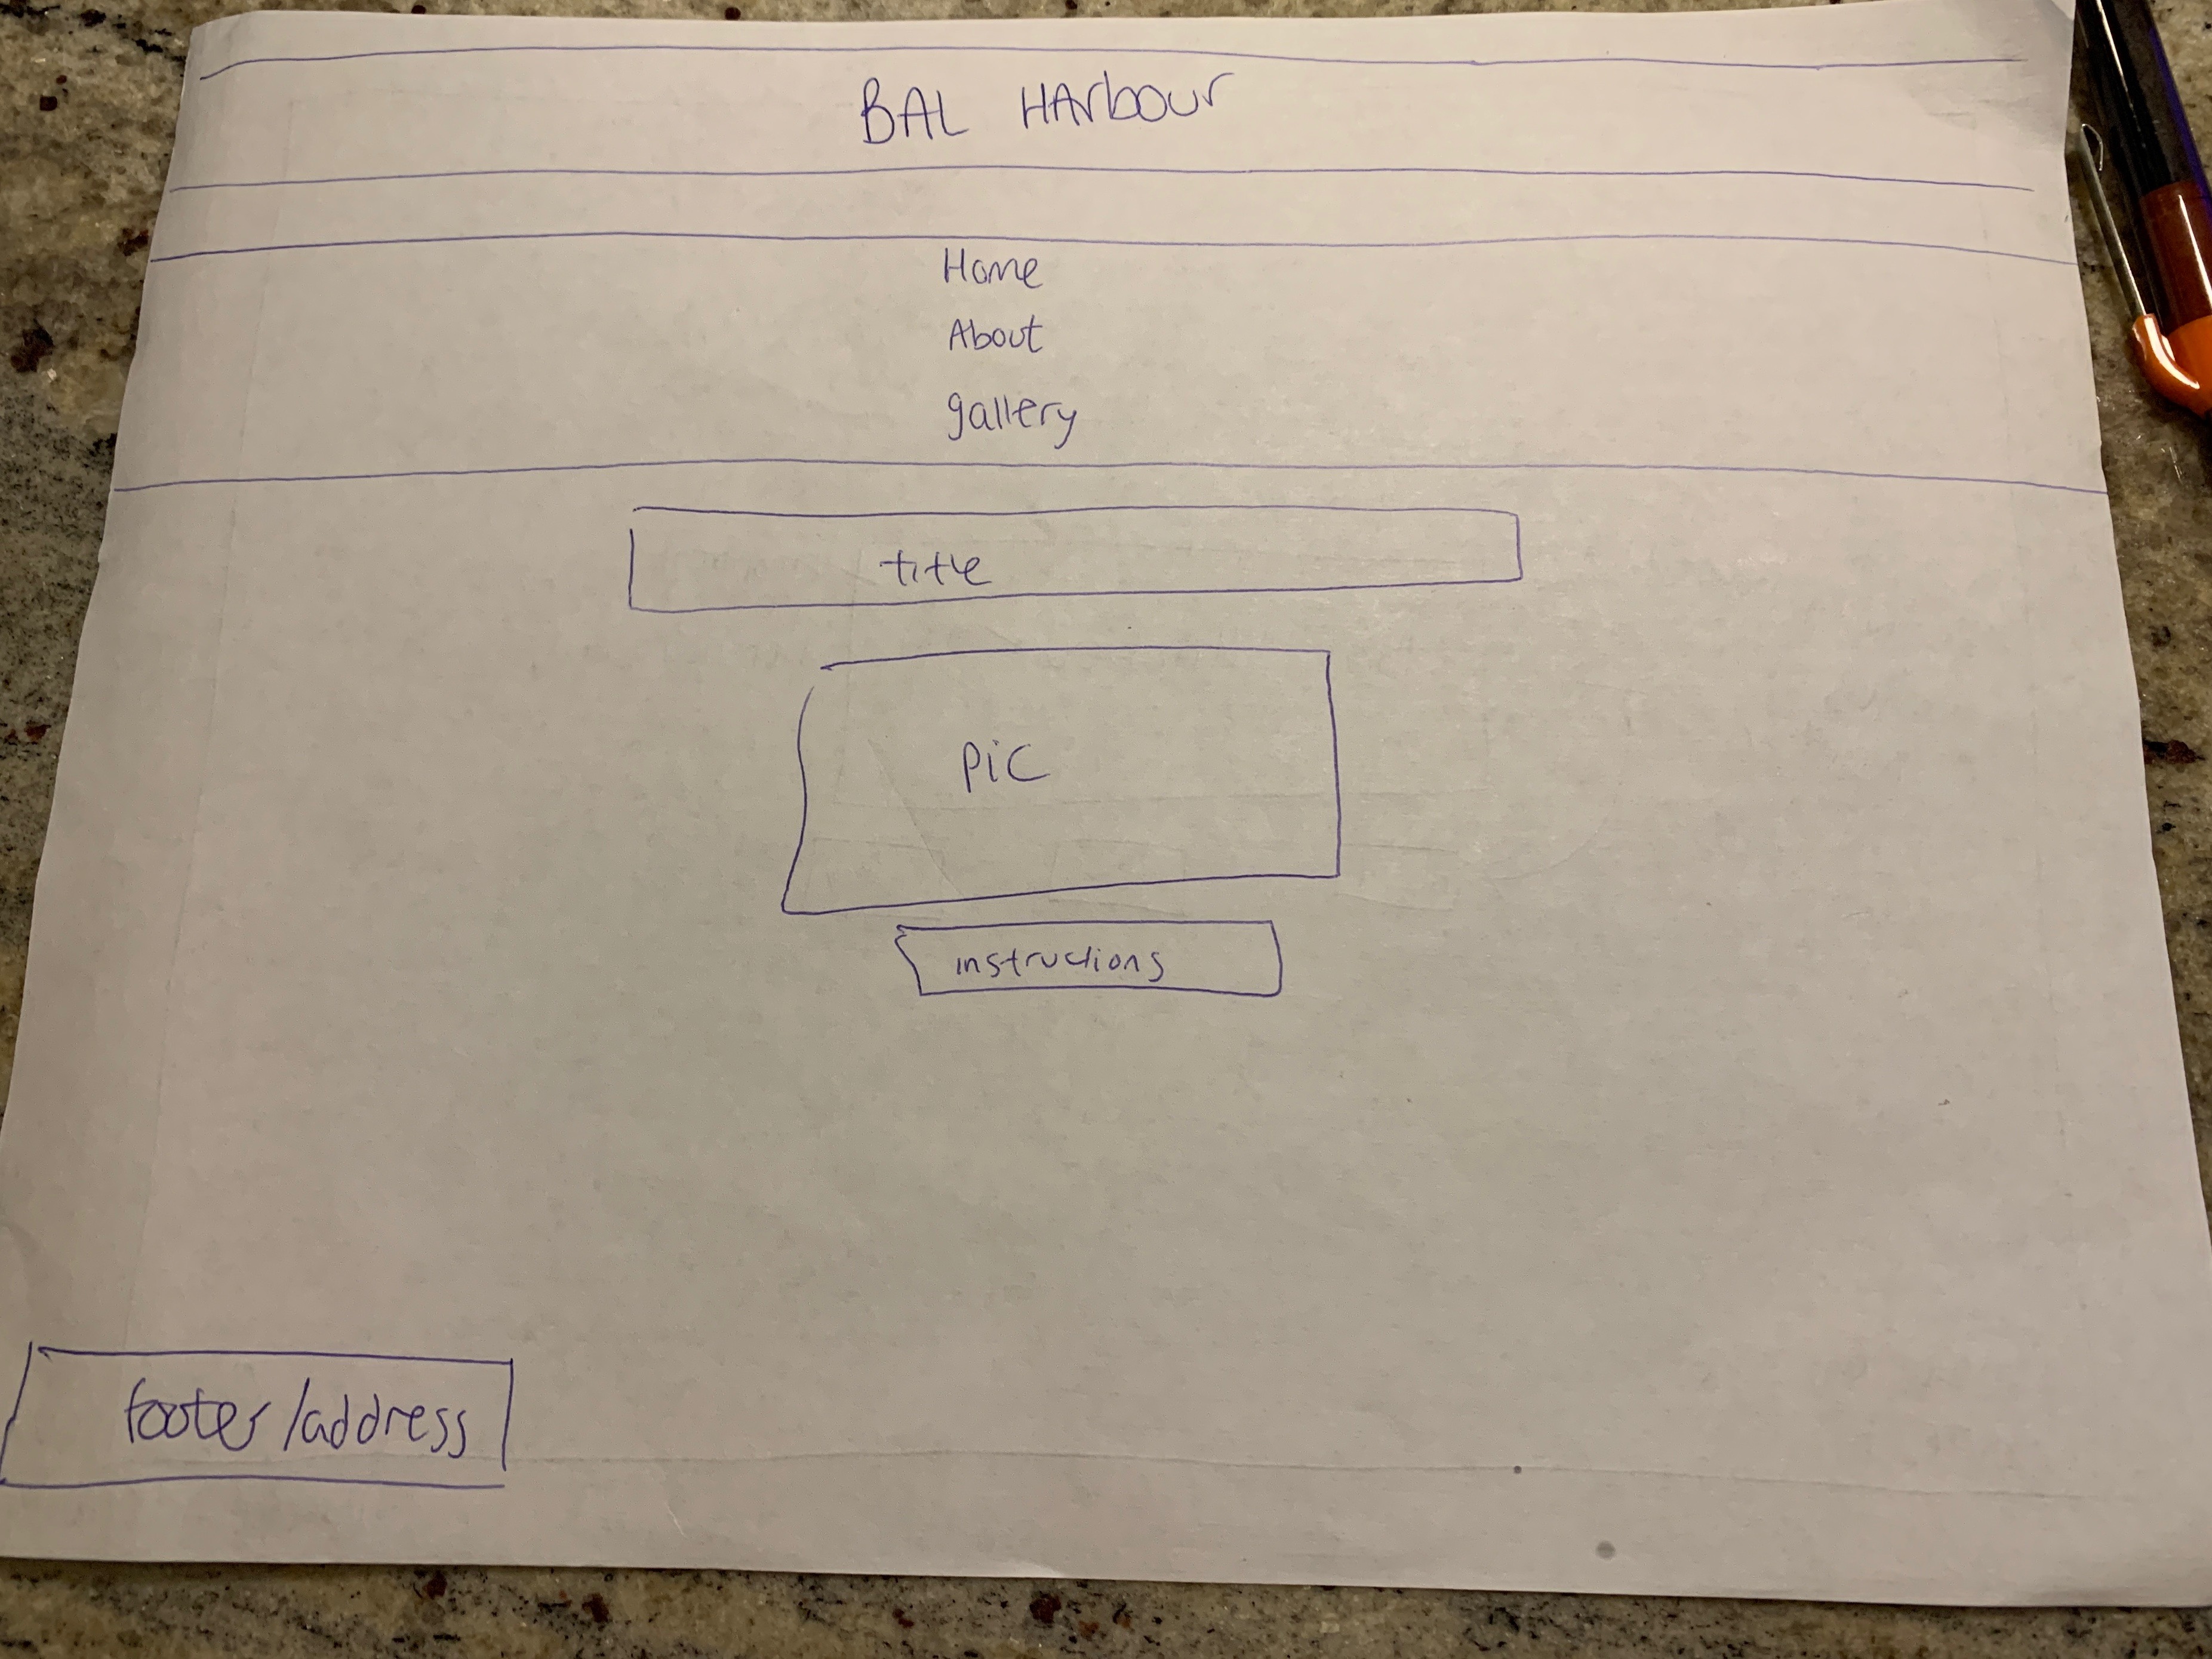 BAL HArbour
Home
About
gallery
title
Pic
instructions
footer/address